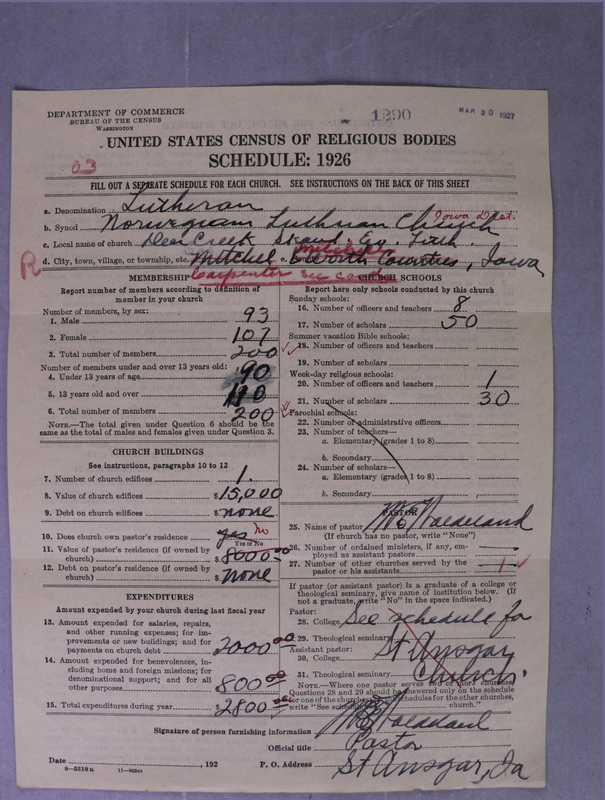 1290
MAR 30 1927
DEPARTMENT OF COMMERCE
BUREAU OF THE CENSUS
WASHINGTON
UNITED STATES CENSUS OF RELIGIOUS BODIES
SCHEDULE: 1926
03
FILL OUT A SEPARATE SCHEDULE FOR EACH CHURCH. SEE INSTRUCTIONS ON THE BACK OF THIS SHEET
a. Denomination Lutheran
b. Synod Norwegian Luthran Church Iowa Dist.
c. Local name of church Deer Creek Ev. Luth.
d. City, town, village, or township, etc. Mitchel & Worth Counties, Iowa
R
Mitchell
Carpenter
MEMBERSHIP
Report number of members according to definition of
member in your church
Number of members, by sex:
1. Male 93
2. Female 107
3. Total number of members 200
Number of members under and over 13 years old:
4. Under 13 years of age 90
5. 13 years old and over 110
6. Total number of members 200
NOTE.—The total given under Question 6 should be the
same as the total of males and females given under Question 3.
CHURCH BUILDINGS
See instructions, paragraphs 10 to 12
7. Number of church edifices 1.
8. Value of church edifices $15,000
9. Debt on church edifices $none
10. Does church own pastor's residence? yes no
Yes or No
11. Value of pastor's residence (if owned by
church) $8000.00
12. Debt on pastor's residence (if owned by
church) $none
EXPENDITURES
Amount expended by your church during last fiscal year
13. Amount expended for salaries, repairs,
and other running expenses; for im-
provements or new buildings; and for
payments on church debt 2000.00
14. Amount expended for benevolences, in-
cluding home and foreign missions; for
denominational support; and for all
other purposes 800.00
15. Total expenditures during year $2800.00
CHURCH SCHOOLS
Report here only schools conducted by this church
Sunday schools:
16. Number of officers and teachers 8
17. Number of scholars 50
Summer vacation Bible schools:
18. Number of officers and teachers
19. Number of scholars
Week-day religious schools:
20. Number of officers and teachers 1
21. Number of scholars 30
Parochial schools:
22. Number of administrative officers
23. Number of teachers—
a. Elementary (grades 1 to 8)
b. Secondary
24. Number of scholars—
a. Elementary (grades 1 to 8)
b. Secondary
PASTOR
25. Name of pastor
(If church has no pastor, write "None")
26. Number of ordained ministers, if any, em-
ployed as assistant pastors
27. Number of other churches served by the
pastor or his assistants 1
If pastor (or assistant pastor) is a graduate of a college or
theological seminary, give name of institution below. (If
not a graduate, write "No" in the space indicated.)
Pastor:
28. College See schedule for
29. Theological seminary St Ansgar
Assistant pastor:
30. College
31. Theological seminary Church.
NOTE.—Where one pastor serves two or more churches
Questions 28 and 29 should be answered only on the schedule
for one of the churches. Schedules for the other churches,
write "See schedule church."
Signature of person furnishing information
Official title Pastor
Date , 192
P. O. Address St Ansgar, Ia
8-5318a